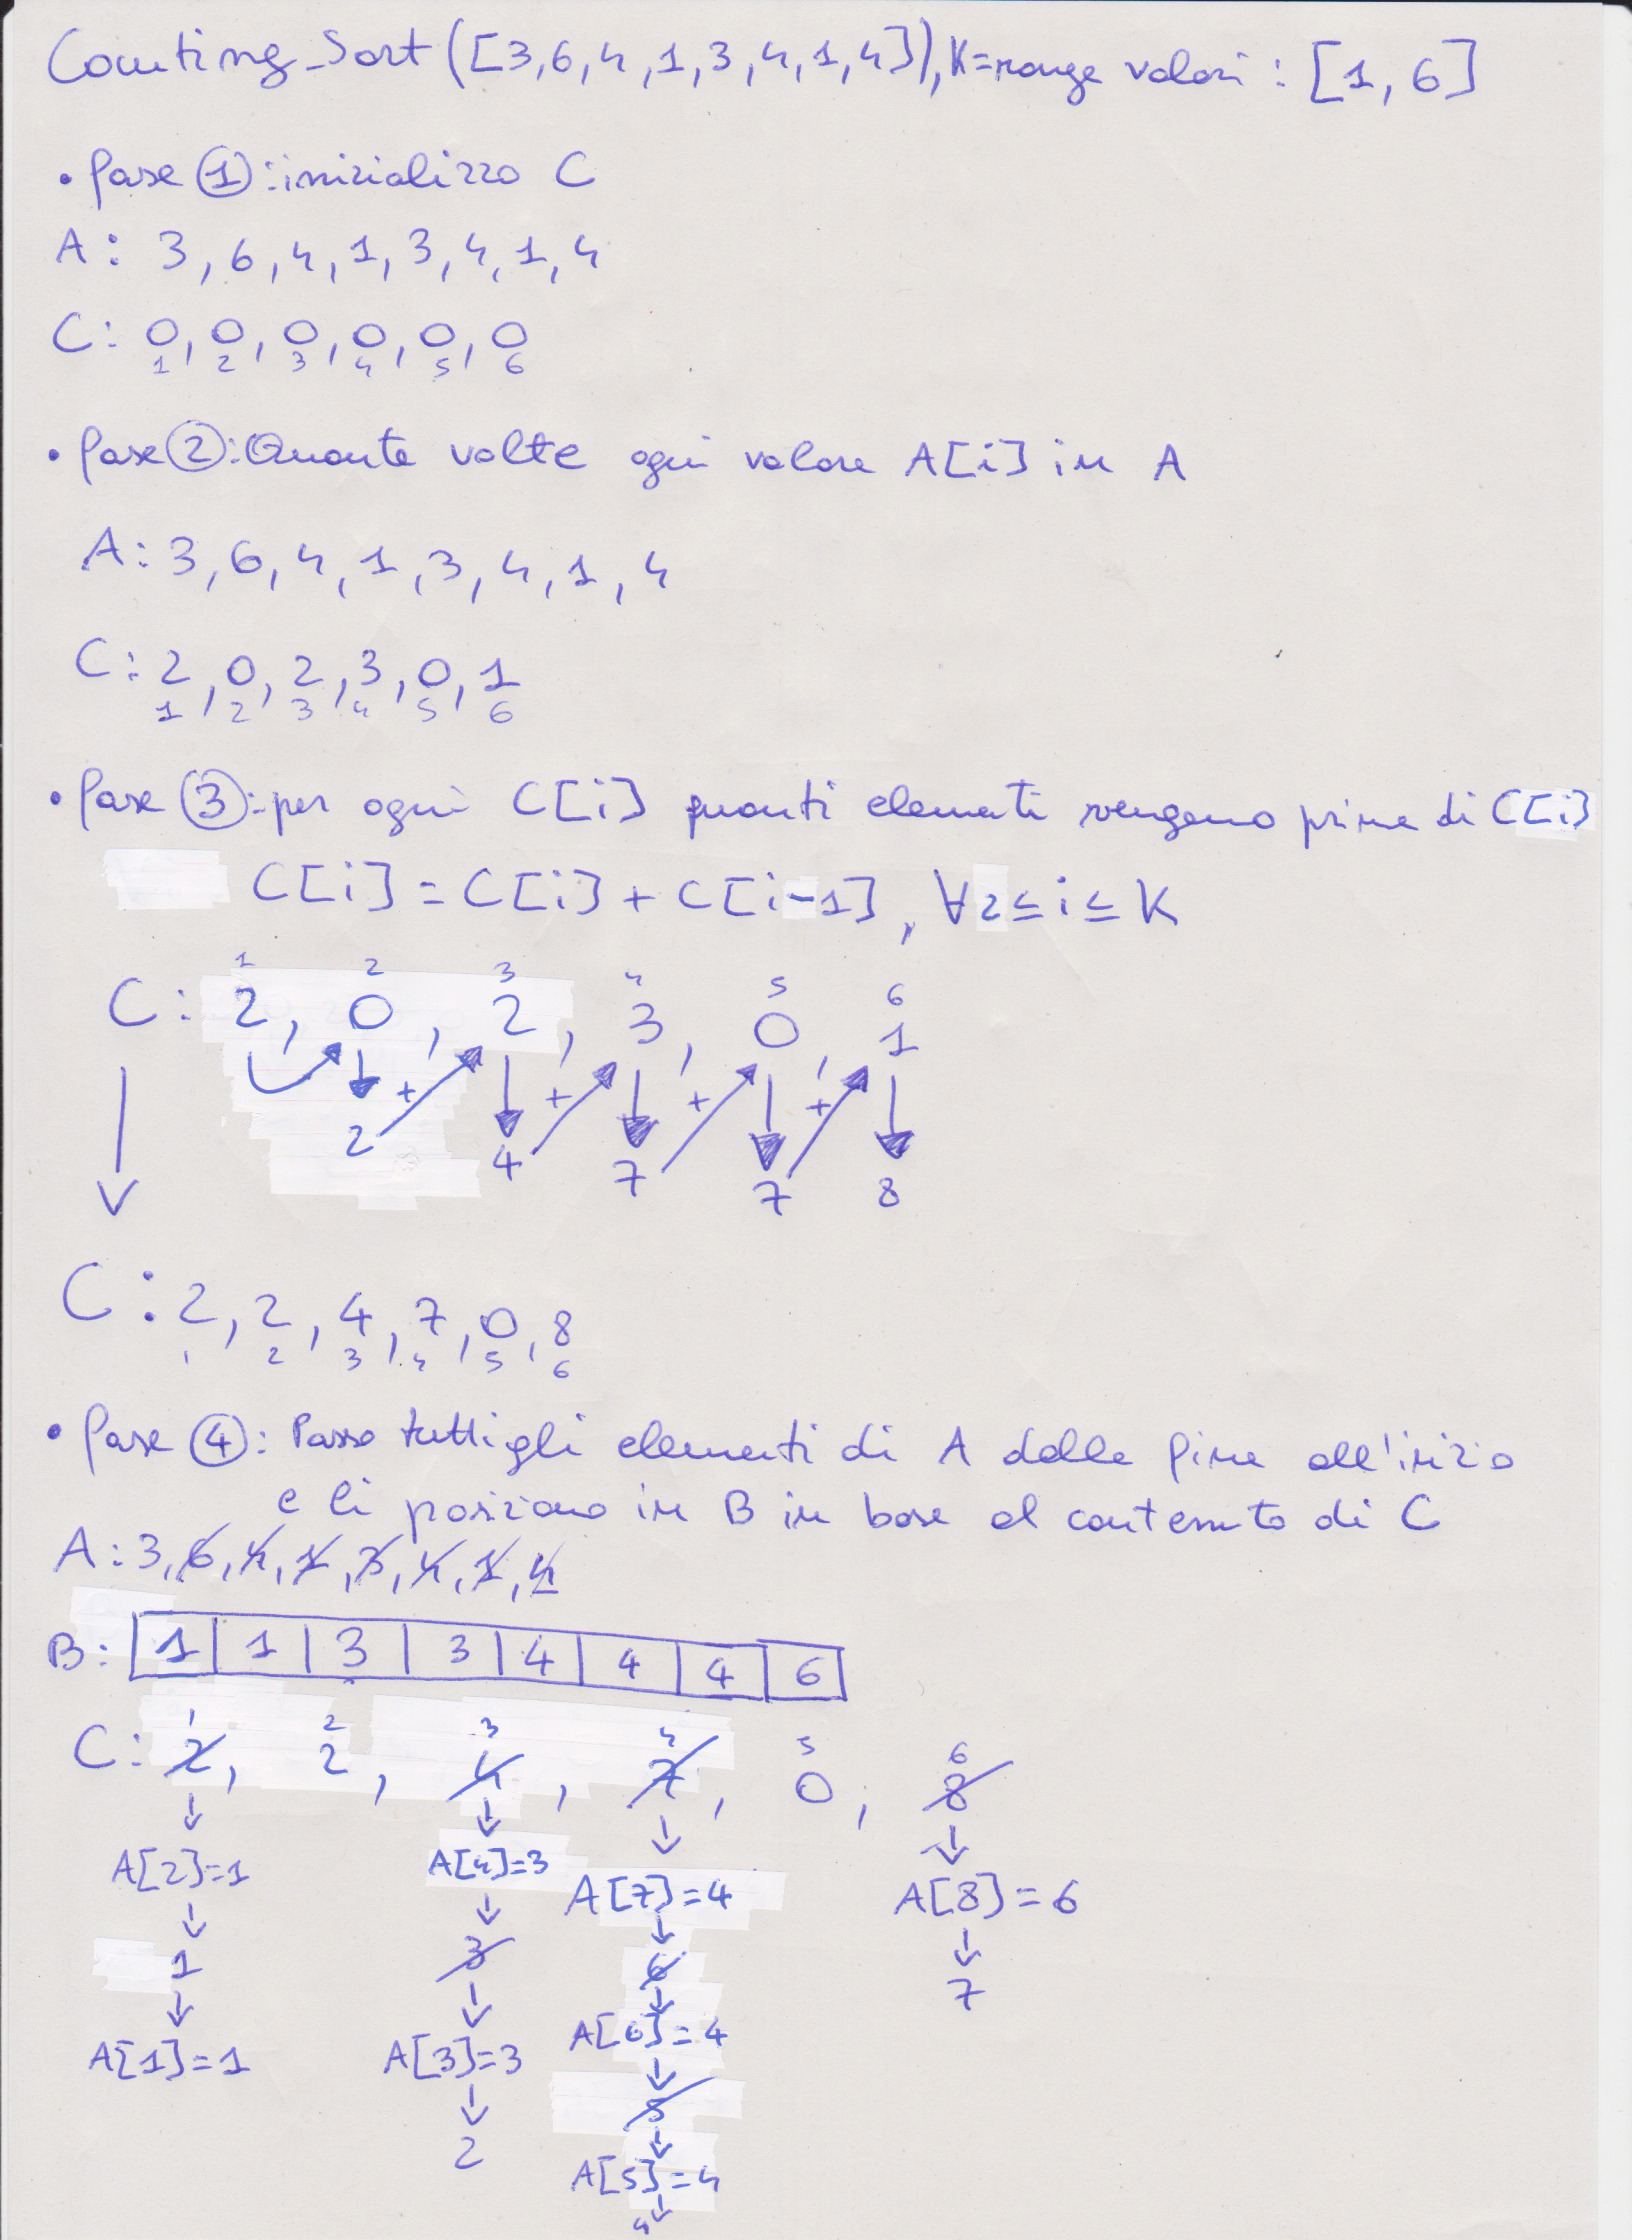 Counting_Sort([3,6,4,1,3,4,1,4]), K=range valori: [1,6]
• fase ①: inizializzo C
A: 3,6,4,1,3,4,1,4
C: 0,0,0,0,0,0
1 2 3 4 5 6
• fase ②: Quante volte ogni valore A[i] in A
A: 3,6,4,1,3,4,1,4
C: 2,0,2,3,0,1
1 2 3 4 5 6
• fase ③: per ogni C[i] quanti elementi vengono prima di C[i]
C[i] = C[i] + C[i-1], ∀2≤i≤K
1 2 3 4 5 6
C: 2, 0, 2, 3, 0, 1
+ + + +
2 4 7 7 8
C: 2,2,4,7,0,8
1 2 3 4 5 6
• fase ④: Passo tutti gli elementi di A dalla fine all'inizio
e li posiziono in B in base al contenuto di C
A: 3,6,4,1,3,4,1,4
B: 1 1 3 3 4 4 4 6
1 2 3 4 5 6
C: 2, 2, 4, 7, 0, 8
A[2]=1 A[4]=3 A[7]=4 A[8]=6
1 3 6 7
A[1]=1 A[3]=3 A[6]=4
2 5
A[5]=4
4